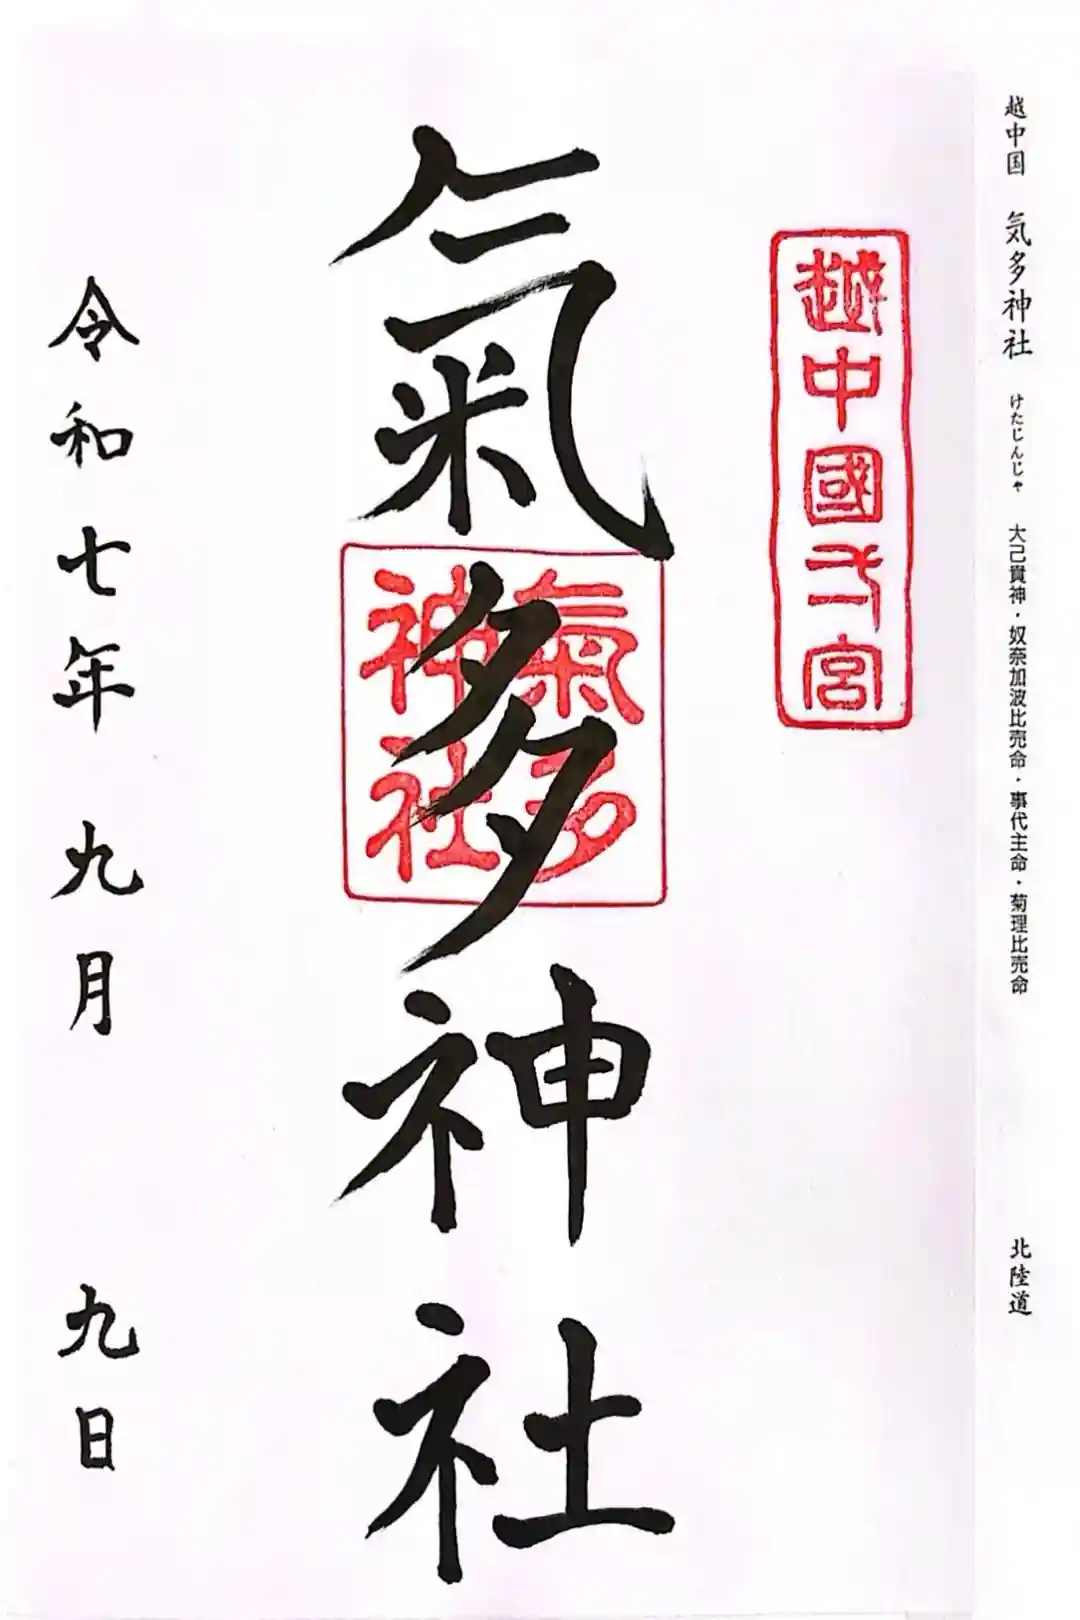 越中国 気多神社 けたじんじゃ 大己貴神・奴奈加波比売命・事代主命・菊理比売命 北陸道
越中國一宮
氣多神社
氣多
神社
令和七年 九月 九日